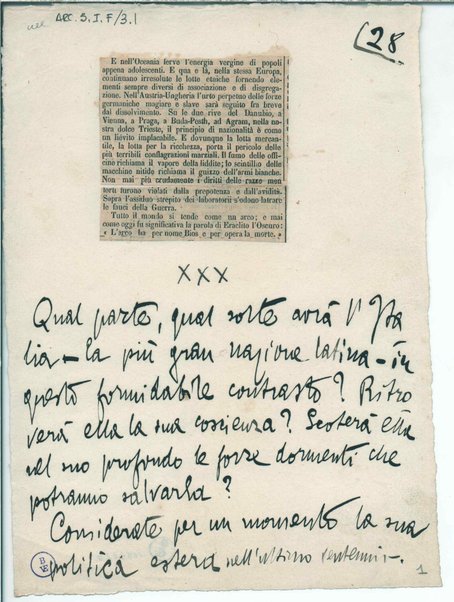 ARC. 5. I. F/3.1
(28
E nell'Oceania ferve l'energia vergine di popoli
appena adolescenti. E qua e là, nella stessa Europa,
continuano irresolute le lotte etniche fornendo ele-
menti sempre diversi di associazione e di disgrega-
zione. Nell'Austria-Ungheria l'urto perpetuo delle forze
germaniche magiare e slave sarà seguito fra breve
dal dissolvimento. Su le due rive del Danubio, a
Vienna, a Praga, a Buda-Pesth, ad Agram, nella no-
stra dolce Trieste, il principio di nazionalità è come
un lièvito implacabile. E dovunque la lotta mercan-
tile, la lotta per la ricchezza, porta il pericolo delle
più terribili conflagrazioni marziali. Il fumo delle offi-
cine richiama il vapore della fiddite; lo scintillio delle
macchine nitide richiama il guizzo dell'armi bianche.
Non mai più crudamente i diritti delle razze men
forti furono violati dalla prepotenza e dall'avidità.
Sopra l'assiduo strepito dei laboratorii s'odono latrare
le fauci della Guerra.
Tutto il mondo si tende come un arco; e mai
come oggi fu significativa la parola di Eraclito l'Oscuro:
« L'arco ha per nome Bios e per opera la morte. »
XXX
Qual parte, qual sorte avrà l'Ita
lia – la più gran nazione latina – in
questo formidabile contrasto? Ritro
verà ella la sua coscienza? Scoterà ella
nel suo profondo le forze dormenti che
potranno salvarla?
Considerate per un momento la sua
politica estera nell'ultimo ventennio.
BVE
1